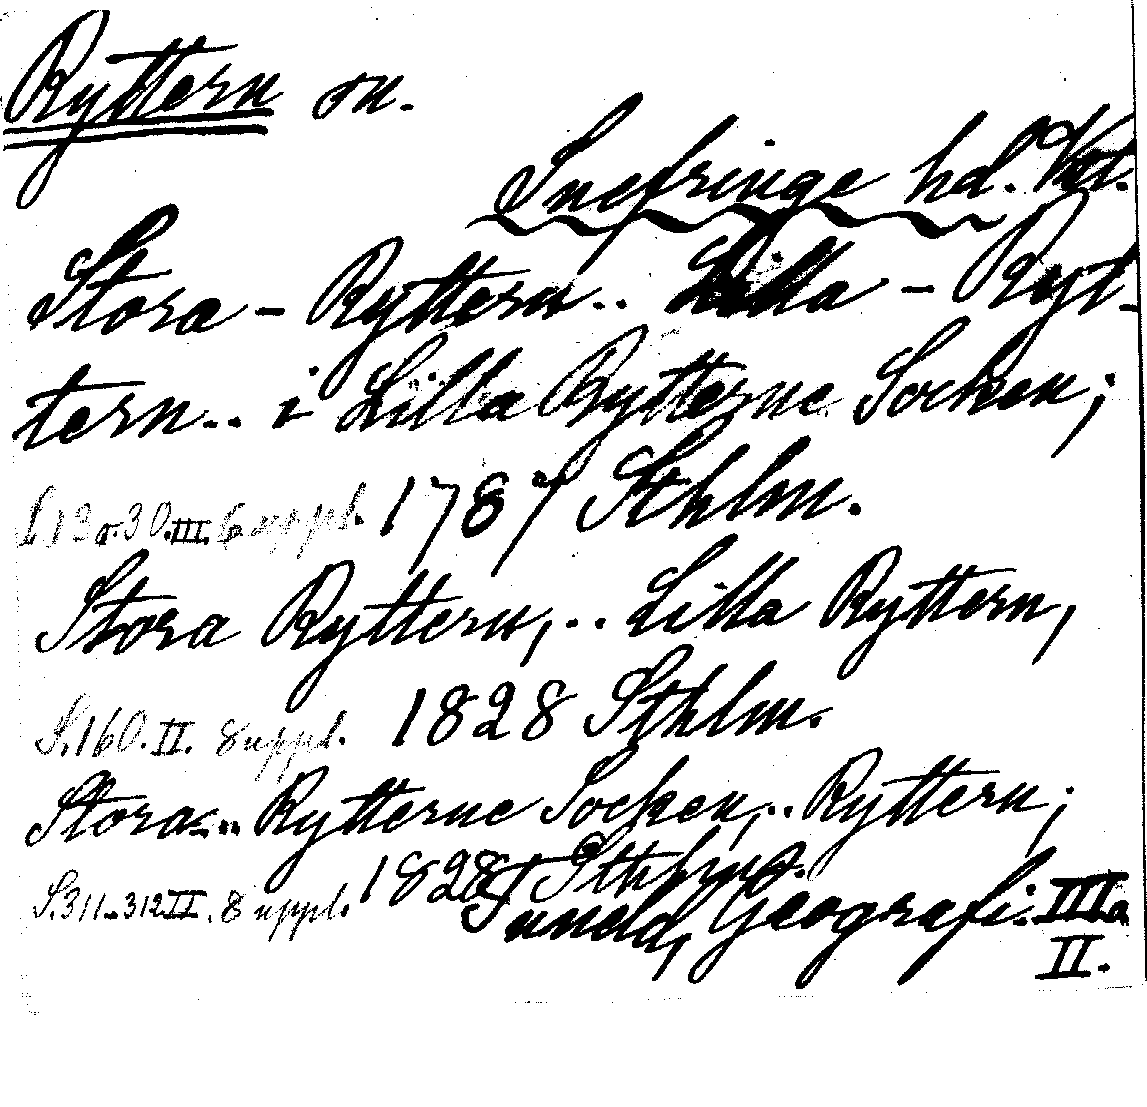 Ryttern sn.
Snefringe hd. Vstm.
Stora - Ryttern.. Lilla - Ryt-
tern.. i Lilla Rytterne Socken;
S.13 o. 30. III. 6 uppl. 1787 Sthlm.
Stora Ryttern, .. Lilla Ryttern,
S. 160. II. 8 uppl. 1828 Sthlm.
Stora... Rytterne Socken, .. Ryttern;
S. 311-312 II. 8 uppl. 1828 Sthlm.
Tuneld, Geografi. III a
II.